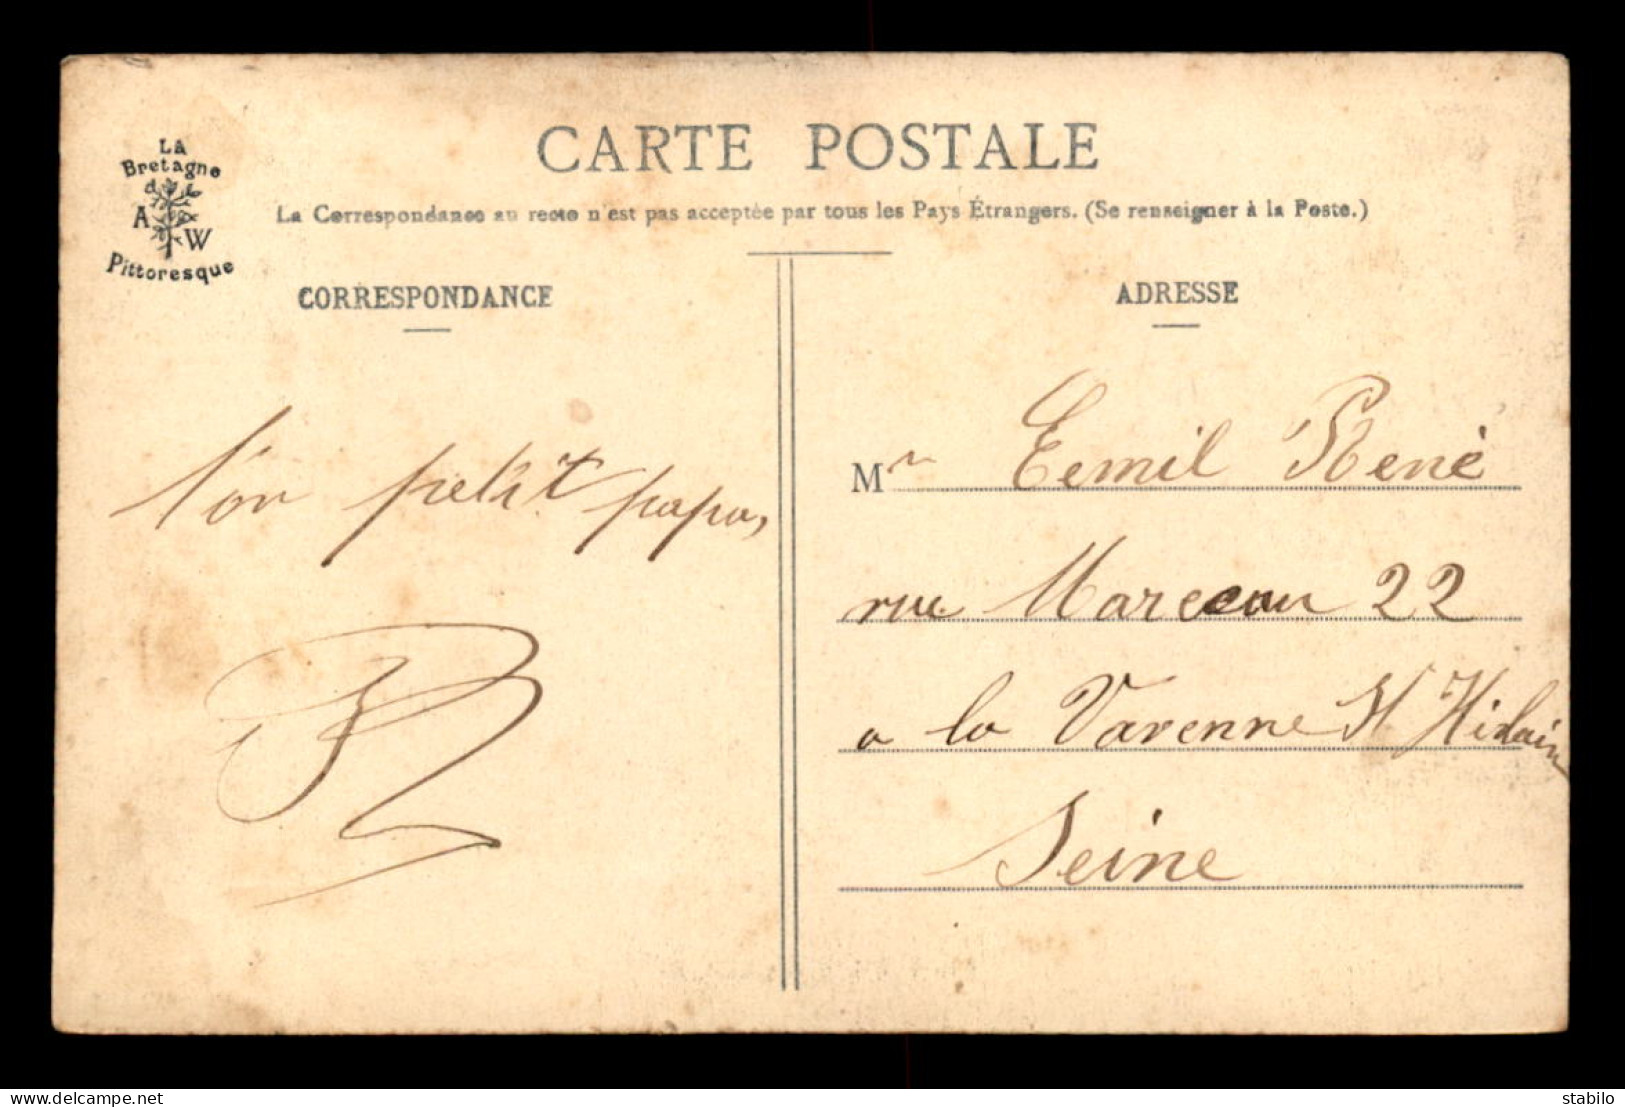 LA
Bretagne
A W
Pittoresque
CARTE POSTALE
La Correspondance au recto n'est pas acceptée par tous les Pays Étrangers. (Se renseigner à la Poste.)
CORRESPONDANCE
Ton petit papa,
ADRESSE
Mr Eemil René
rue Marceau 22
a la Varenne St Hilain
Seine
delcampe.net
stabilo